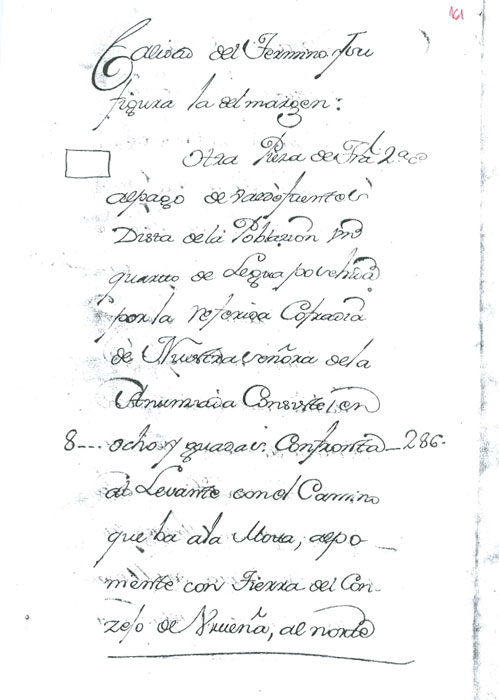 161
Calidad del Termino su
figura la del margen:
Otra Pieza de Trª
al pago de
Dista de la Poblazion un
quarto de Legua
por la referida Cofradia
de Nuestra señora de la
Anunziada Consiste en
8--- ocho yguadas. Confronta - 286.
al Levante con el Camino
que ba a la Moxa, al po-
niente con Tierra del Con-
zejo de Urueña, al norte